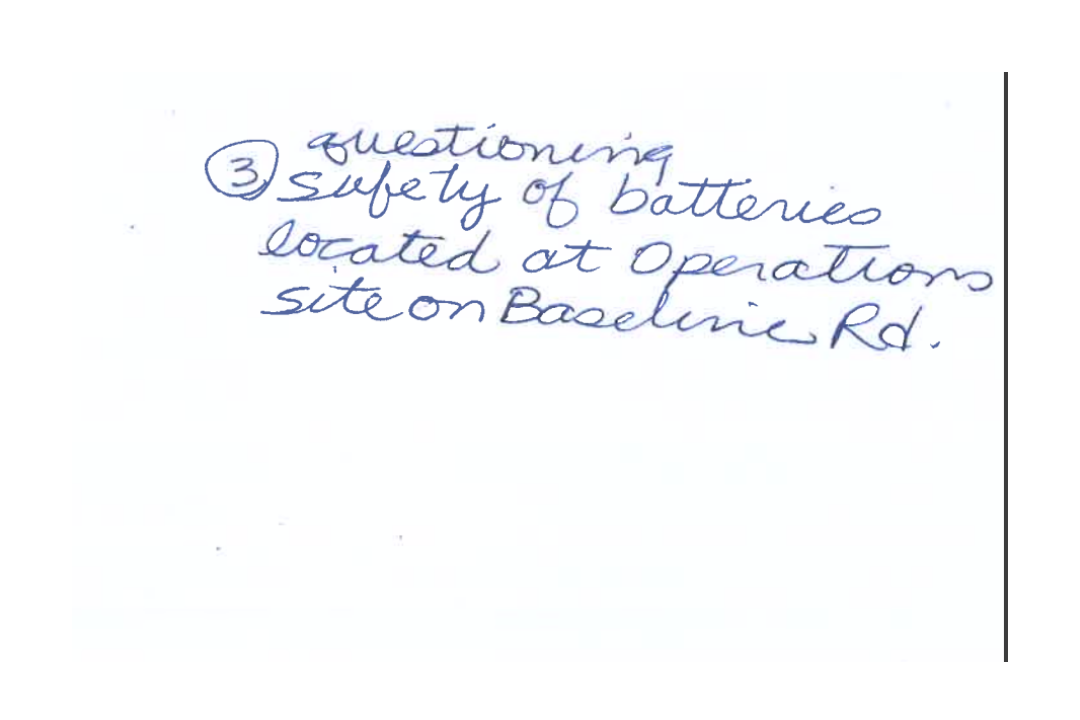 questioning
③ safety of batteries
located at Operations
site on Baseline Rd.